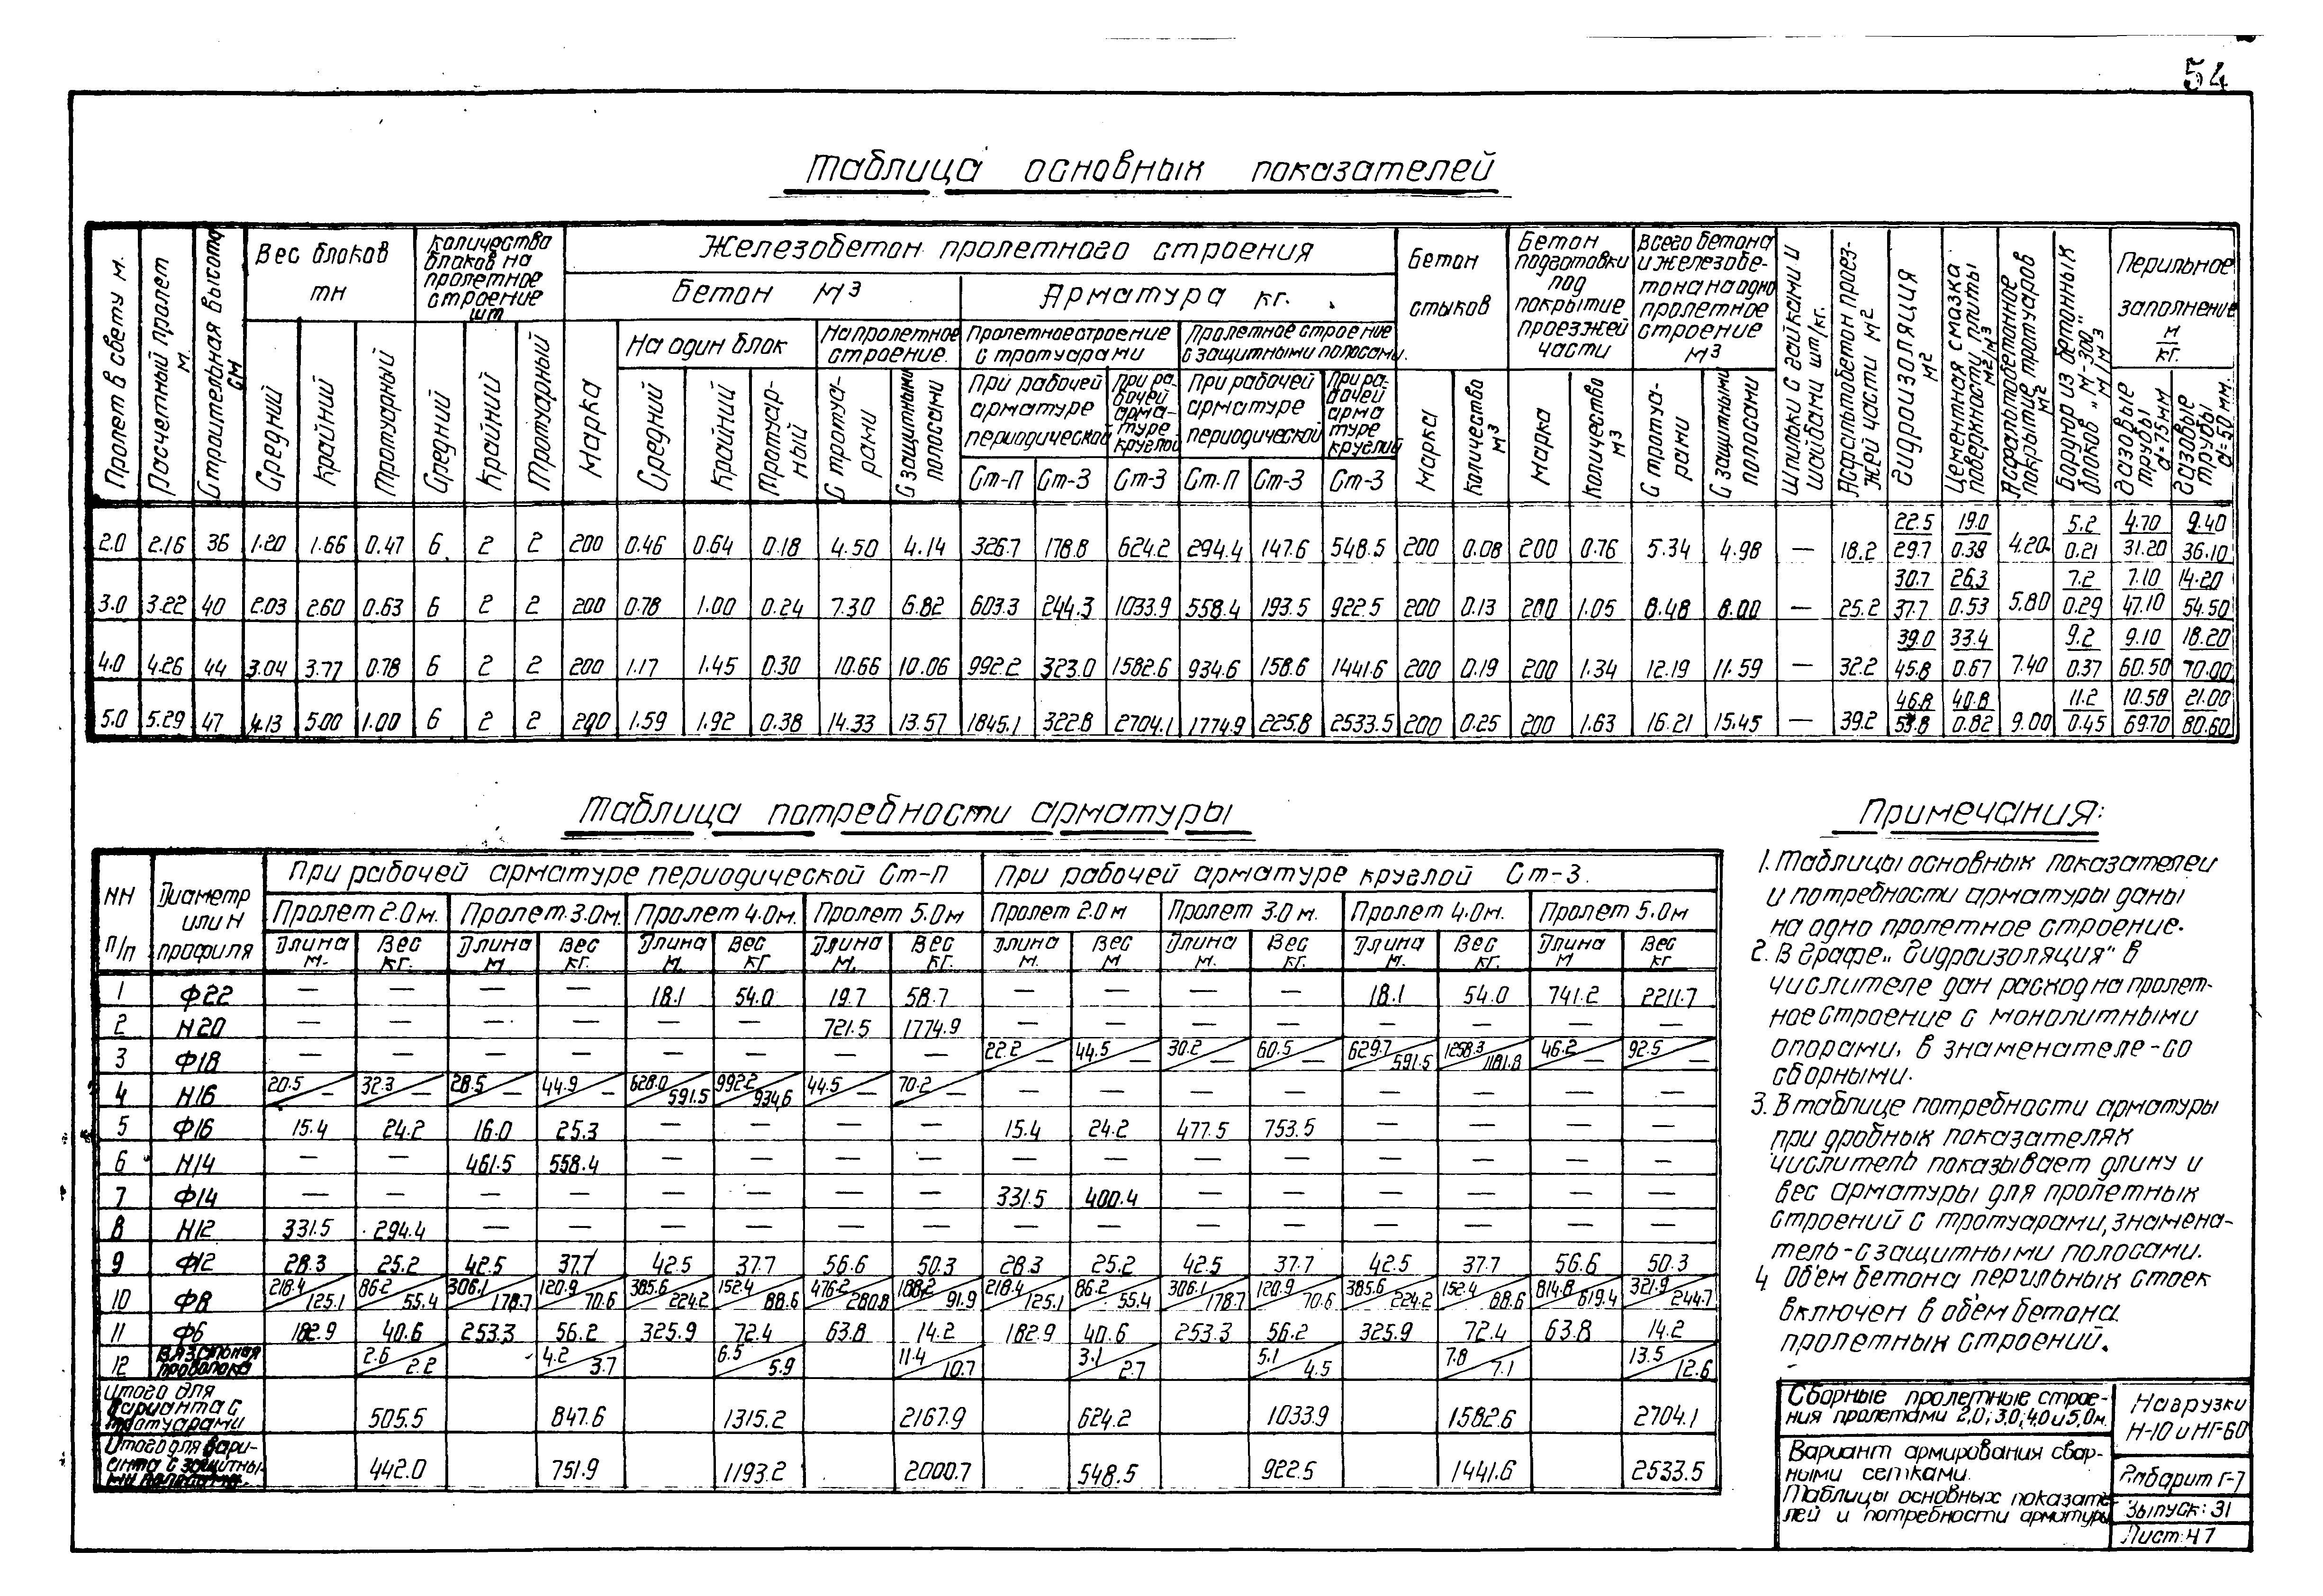 54
Таблица основных показателей
Пролет в свету м.
Расчетный пролет м.
Строительная высота см
Вес блоков тн
Средний
Крайний
Тротуарный
Количество блоков на пролетное строение шт
Средний
Крайний
Тротуарный
Железобетон пролетного строения
Бетон м³
Арматура кг.
Марка
На один блок
Средний
Крайний
Тротуарный
На пролетное строение.
С тротуарами
С защитными полосами
Пролетное строение с тротуарами
При рабочей арматуре периодической
При рабочей арматуре круглой
Ст-П Ст-3 Ст-3
Пролетное строение с защитными полосами.
При рабочей арматуре периодической
При рабочей арматуре круглой
Ст-П Ст-3 Ст-3
Бетон стыков
Марка
Количество м³
Бетон подготовки под покрытие проезжей части
Марка
Количество м³
Всего бетона и железобетона на одно пролетное строение м³
С тротуарами
С защитными полосами
Шпильки с гайками и шайбами шт/кг.
Асфальтобетон проезжей части м²
Гидроизоляция м²
Цементная смазка поверхности плиты м²/м³
Асфальтобетонное покрытие тротуаров м²
Бордюр из бетонных блоков „М-300" м/м³
Перильное заполнение м/кг.
Газовые трубы d=75мм
Газовые трубы d=50мм.
2.0 2.16 36 1.20 1.66 0.47 6 2 2 200 0.46 0.64 0.18 4.50 4.14 326.7 178.8 624.2 294.4 147.6 548.5 200 0.08 200 0.76 5.34 4.98 — 18.2 22.5/29.7 19.0/0.38 4.20 5.2/0.21 4.70/31.20 9.40/36.10
3.0 3.22 40 2.03 2.60 0.63 6 2 2 200 0.78 1.00 0.24 7.30 6.82 603.3 244.3 1033.9 558.4 193.5 922.5 200 0.13 200 1.05 8.48 8.00 — 25.2 30.7/37.7 26.3/0.53 5.80 7.2/0.29 7.10/47.10 14.20/54.50
4.0 4.26 44 3.04 3.77 0.78 6 2 2 200 1.17 1.45 0.30 10.66 10.06 992.2 323.0 1582.6 934.6 158.6 1441.6 200 0.19 200 1.34 12.19 11.59 — 32.2 39.0/45.8 33.4/0.67 7.40 9.2/0.37 9.10/60.50 18.20/70.00
5.0 5.29 47 4.13 5.00 1.00 6 2 2 200 1.59 1.92 0.38 14.33 13.57 1845.1 322.8 2704.1 1774.9 225.8 2533.5 200 0.25 200 1.63 16.21 15.45 — 39.2 46.8/53.8 40.8/0.82 9.00 11.2/0.45 10.50/69.70 21.00/80.60
Таблица потребности арматуры
НН п/п
Диаметр или Н профиля
При рабочей арматуре периодической Ст-П
При рабочей арматуре круглой Ст-3.
Пролет 2.0м. Пролет 3.0м. Пролет 4.0м. Пролет 5.0м Пролет 2.0м Пролет 3.0м. Пролет 4.0м. Пролет 5.0м
Длина м. Вес кг. Длина м Вес кг. Длина м. Вес кг Длина м. Вес кг. Длина м. Вес м Длина м. Вес кг. Длина м. Вес кг. Длина м Вес кг
1 Ф22 — — — — 18.1 54.0 19.7 58.7 — — — — 18.1 54.0 741.2 2211.7
2 Н20 — — — — — — 721.5 1774.9 — — — — — — — —
3 Ф18 — — — — — — — — 22.2/— 44.5/— 30.2/— 60.5/— 629.7/591.5 1258.3/1181.8 46.2/— 92.5/—
4 Н16 20.5/— 32.3/— 28.5/— 44.9/— 628.0/591.5 992.2/934.6 44.5/— 70.2/— — — — — — — — —
5 Ф16 15.4 24.2 16.0 25.3 — — — — 15.4 24.2 477.5 753.5 — — — —
6 Н14 — — 461.5 558.4 — — — — — — — — — — — —
7 Ф14 — — — — — — — — 331.5 400.4 — — — — — —
8 Н12 331.5 294.4 — — — — — — — — — — — — — —
9 Ф12 28.3 25.2 42.5 37.7 42.5 37.7 56.6 50.3 28.3 25.2 42.5 37.7 42.5 37.7 56.6 50.3
10 Ф8 218.4/125.1 86.2/55.4 306.1/178.7 120.9/70.6 385.6/224.2 152.4/88.6 476.2/280.8 188.2/91.9 218.4/125.1 86.2/55.4 306.1/178.7 120.9/70.6 385.6/224.2 152.4/88.6 814.8/619.4 321.9/244.7
11 Ф6 182.9 40.6 253.3 56.2 325.9 72.4 63.8 14.2 182.9 40.6 253.3 56.2 325.9 72.4 63.8 14.2
12 Вязальная проволока 2.6/2.2 4.2/3.7 6.5/5.9 11.4/10.7 3.1/2.7 5.1/4.5 7.8/7.1 13.5/12.6
Итого для варианта с тротуарами 505.5 847.6 1315.2 2167.9 624.2 1033.9 1582.6 2704.1
Итого для варианта с защитными полосами 442.0 751.9 1193.2 2000.7 548.5 922.5 1441.6 2533.5
Примечания:
1. Таблицы основных показателей
и потребности арматуры даны
на одно пролетное строение.
2. В графе „Гидроизоляция" в
числителе дан расход на пролет-
ное строение с монолитными
опорами, в знаменателе - со
сборными.
3. В таблице потребности арматуры
при дробных показателях
числитель показывает длину и
вес арматуры для пролетных
строений с тротуарами, знамена-
тель - с защитными полосами.
4 Объем бетона перильных стоек
включен в объем бетона
пролетных строений.
Сборные пролетные строе-
ния пролетами 2,0; 3,0; 4,0 и 5,0м.
Вариант армирования свар-
ными сетками.
Таблицы основных показате-
лей и потребности арматуры
Нагрузки
Н-10 и НГ-60
Габарит Г-7
Выпуск: 31
Лист: 47